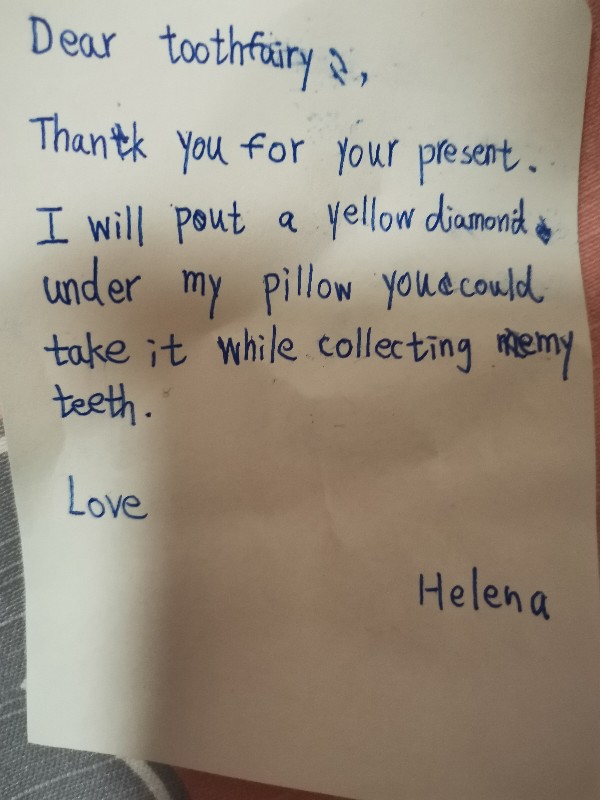 Dear toothfairy,
Thank you for your present.
I will pout a yellow diamond
under my pillow you could
take it while collecting my
teeth.
Love
Helena